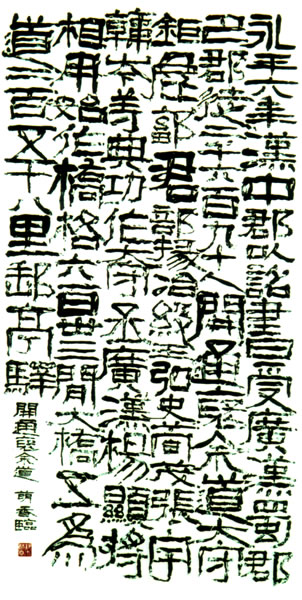 永平六年漢中郡以詔書曰受廣漢蜀郡
巴郡徒二千六百九十人開通褒余道太守
鉅鹿鄐君部掾治級王弘史荀茂張宇
韓岑等典功作太守丞廣漢楊顯將
相用始作橋格六百卅三閒大橋五為
道二百五十八里郵亭驛
開通褒余道 臨